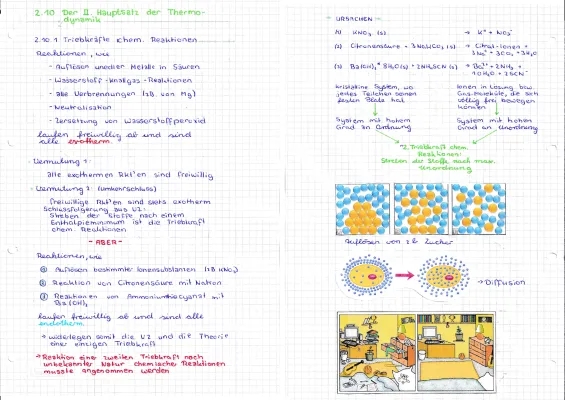 2.10 Der II. Hauptsatz der Thermo-
dynamik
2.10.1 Triebkräfte chem. Reaktionen
Reaktionen, wie
- Auflösen unedler Metalle in Säuren
- Wasserstoff-Knallgas-Reaktionen
- alle Verbrennungen (zB. von Mg)
- Neutralisation
- Zersetzung von Wasserstoffperoxid
laufen freiwillig ab und sind
alle exotherm.
Vermutung 1:
alle exothermen Rkt'en sind freiwillig
Vermutung 2: (Umkehrschluss)
freiwillige Rkt'en sind stets exotherm
Schlussfolgerung aus V2:
Streben der Stoffe nach einem
Enthalpieminimum ist die Triebkraft
chem. Reaktionen
- ABER -
Reaktionen, wie
① Auflösen bestimmter Ionensubstanzen (zB KNO₃)
② Reaktion von Citronensäure mit Natron
③ Reaktionen von Ammoniumthiocyanat mit
Ba(OH)₂
laufen freiwillig ab und sind alle
endotherm.
→ widerlegen somit die V2 und die Theorie
einer einzigen Triebkraft
→ Reaktion einer zweiten Triebkraft noch
unbekannter Natur chemischer Reaktionen
musste angenommen werden
URSACHEN
KNO₃ (s) → K⁺ + NO₃⁻
(2) Citronensäure + 3NaHCO₃ (s) → Citrat-Ionen +
3Na⁺ + 3CO₂ + 3H₂O
(3) Ba(OH)₂ · 8H₂O (s) + 2NH₄SCN (s) → Ba²⁺ + 2NH₃ +
10H₂O + 2SCN⁻
kristalline System, wo
jedes Teilchen seinen
festen Platz hat
Ionen in Lösung bzw.
Gas-Moleküle, die sich
völlig frei bewegen
können
System mit hohem
Grad an Ordnung
System mit hohem
Grad an Unordnung
"2. Triebkraft chem.
Reaktionen:
Streben der Stoffe nach max.
Unordnung
Auflösen von zB Zucker
→ Diffusion